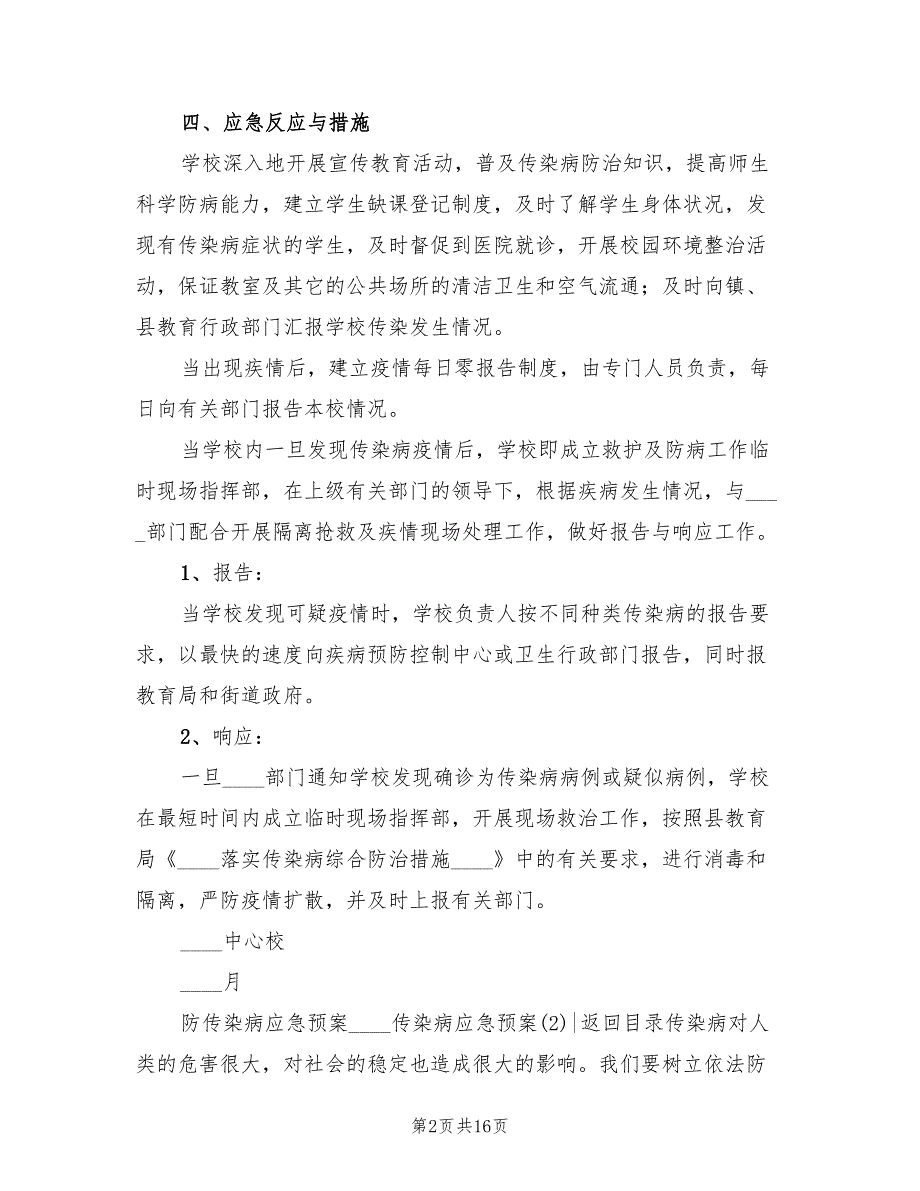 四、应急反应与措施
学校深入地开展宣传教育活动，普及传染病防治知识，提高师生
科学防病能力，建立学生缺课登记制度，及时了解学生身体状况，发
现有传染病症状的学生，及时督促到医院就诊，开展校园环境整治活
动，保证教室及其它的公共场所的清洁卫生和空气流通；及时向镇、
县教育行政部门汇报学校传染发生情况。
当出现疾情后，建立疫情每日零报告制度，由专门人员负责，每
日向有关部门报告本校情况。
当学校内一旦发现传染病疫情后，学校即成立救护及防病工作临
时现场指挥部，在上级有关部门的领导下，根据疾病发生情况，与___
_部门配合开展隔离抢救及疾情现场处理工作，做好报告与响应工作。
1、报告：
当学校发现可疑疫情时，学校负责人按不同种类传染病的报告要
求，以最快的速度向疾病预防控制中心或卫生行政部门报告，同时报
教育局和街道政府。
2、响应：
一旦____部门通知学校发现确诊为传染病病例或疑似病例，学校
在最短时间内成立临时现场指挥部，开展现场救治工作，按照县教育
局《____落实传染病综合防治措施____》中的有关要求，进行消毒和
隔离，严防疫情扩散，并及时上报有关部门。
____中心校
____月
防传染病应急预案____传染病应急预案(2)|返回目录传染病对人
类的危害很大，对社会的稳定也造成很大的影响。我们要树立依法防
第2页共16页